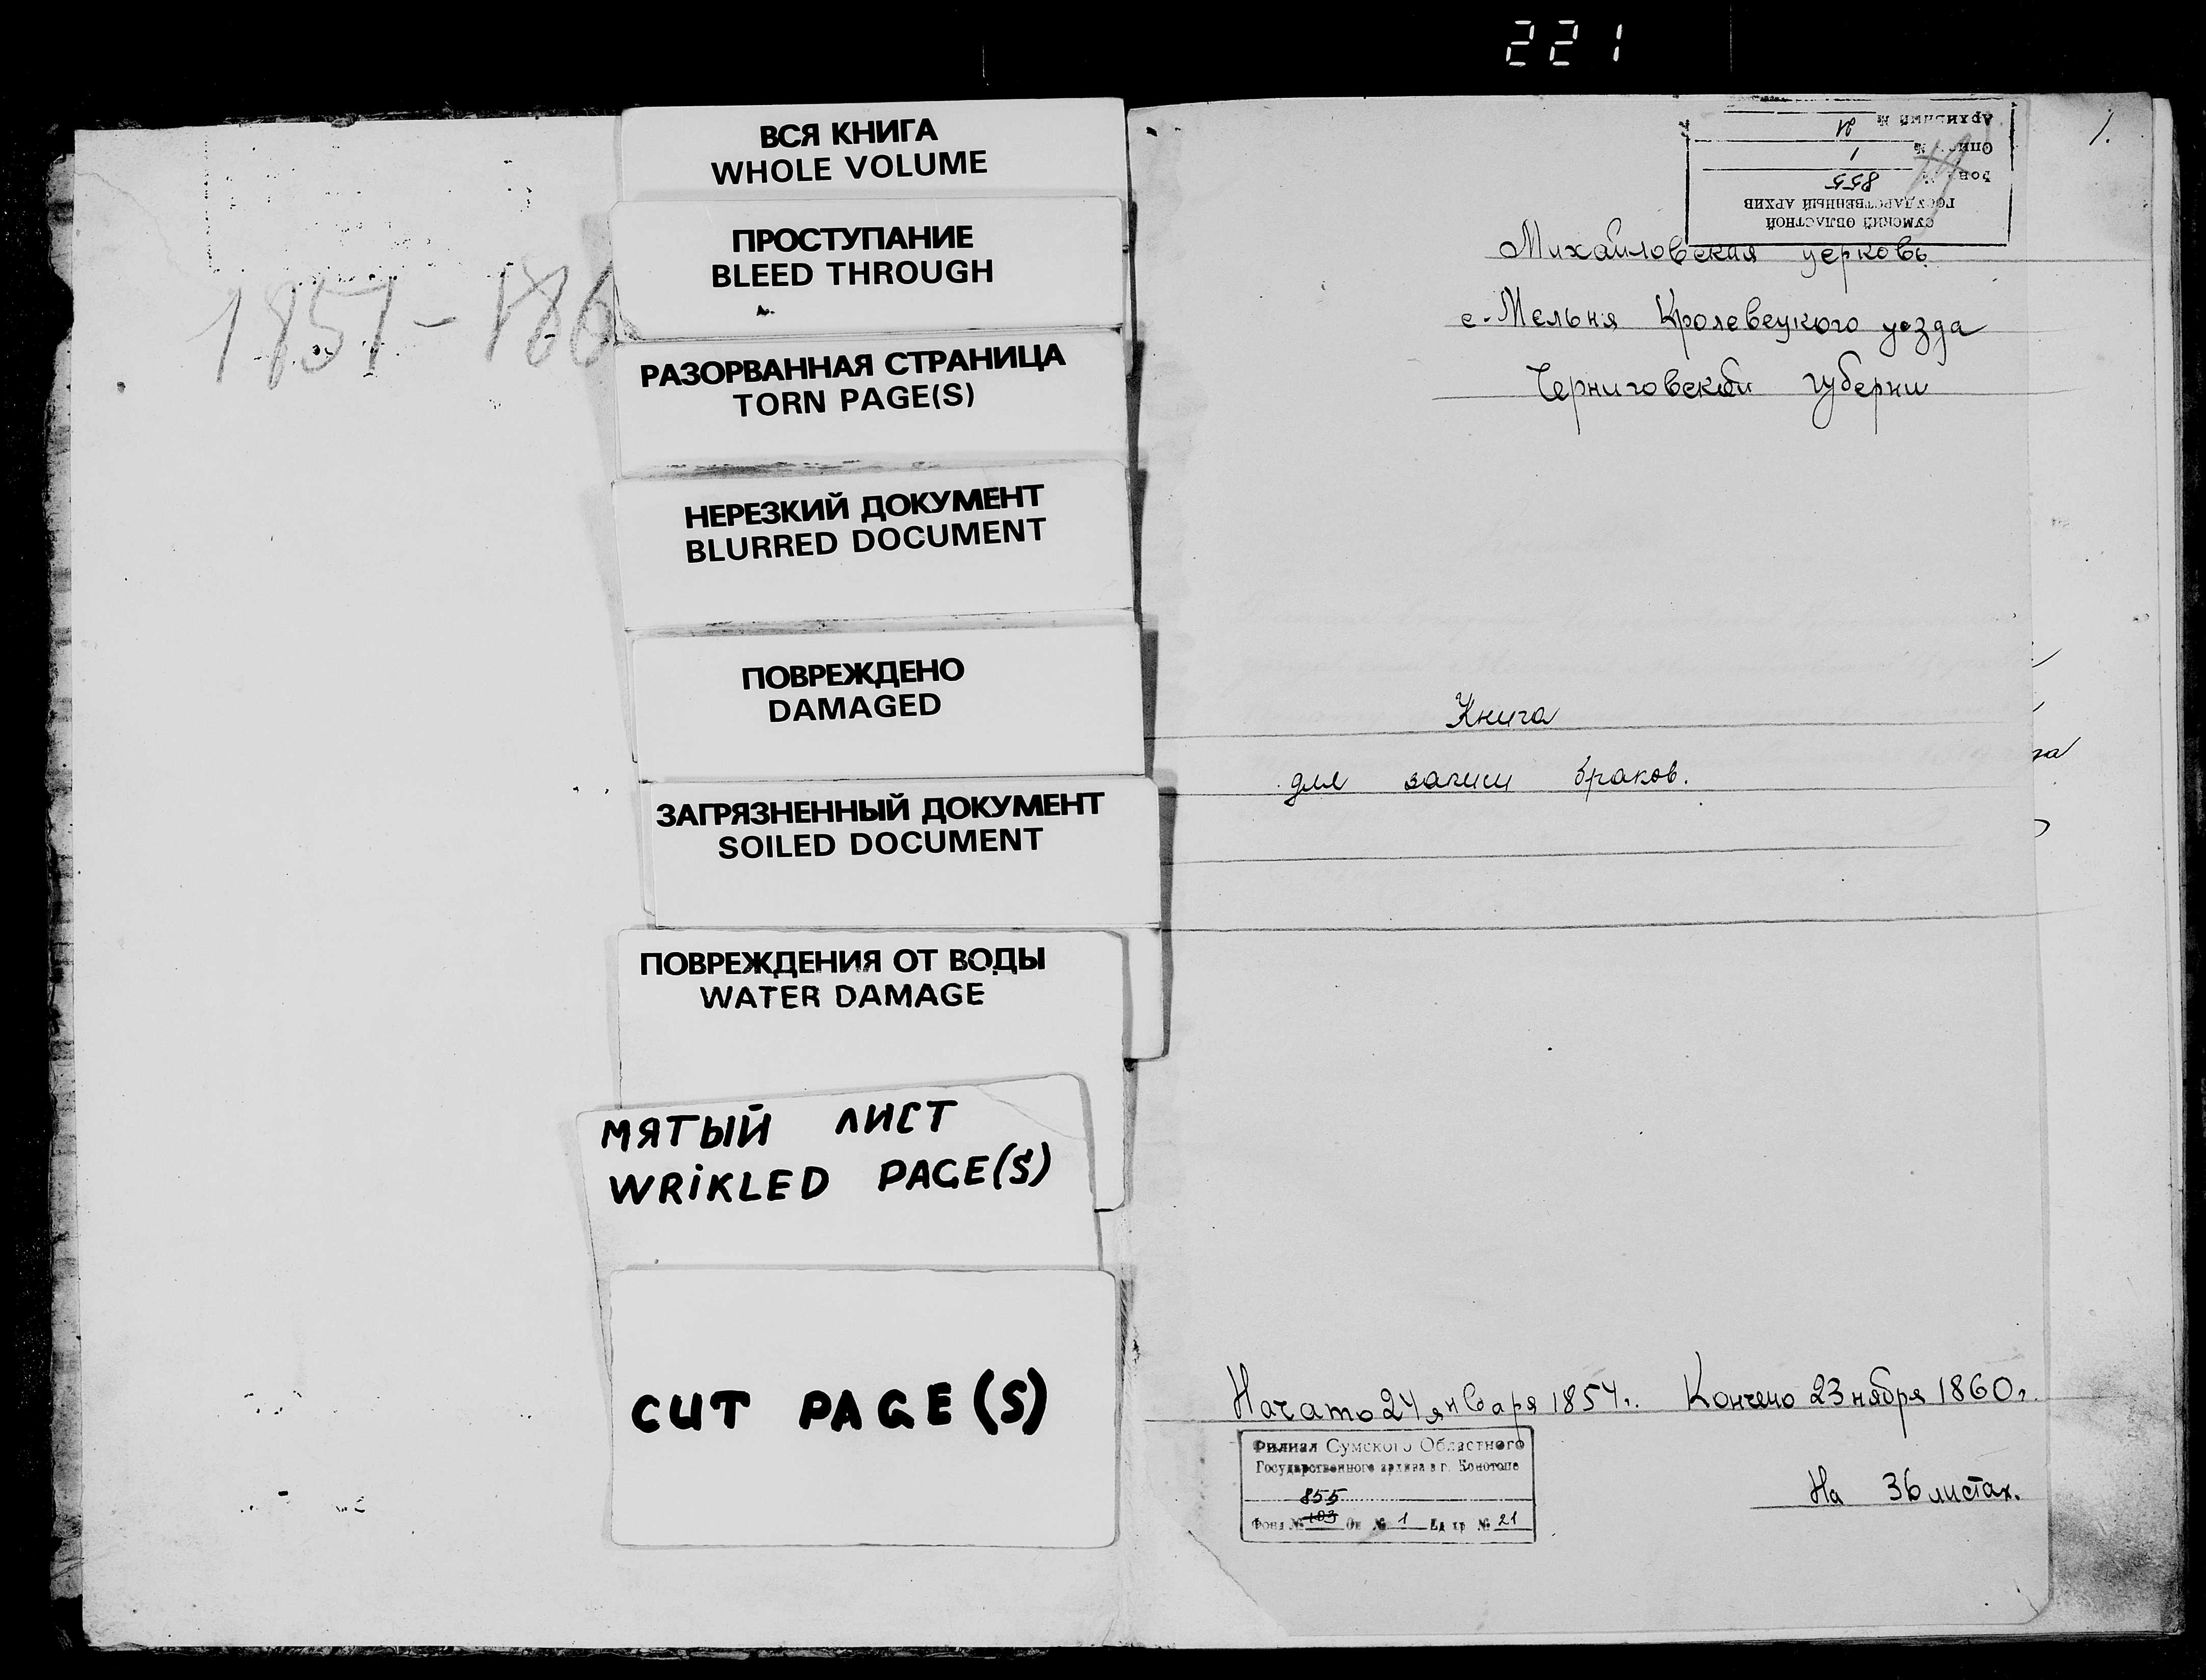 221
1857 - 186
ВСЯ КНИГА
WHOLE VOLUME
ПРОСТУПАНИЕ
BLEED THROUGH
РАЗОРВАННАЯ СТРАНИЦА
TORN PAGE(S)
НЕРЕЗКИЙ ДОКУМЕНТ
BLURRED DOCUMENT
ПОВРЕЖДЕНО
DAMAGED
ЗАГРЯЗНЕННЫЙ ДОКУМЕНТ
SOILED DOCUMENT
ПОВРЕЖДЕНИЯ ОТ ВОДЫ
WATER DAMAGE
МЯТЫЙ ЛИСТ
WRIKLED PAGE(S)
CUT PAGE(S)
1.
СУМСКИЙ ОБЛАСТНОЙ
ГОСУДАРСТВЕННЫЙ АРХИВ
Фонд № 855
Опись № 1
Архивный № 21
Михайловская церковь
с. Мельня Кролевецкого уезда
Черниговской губерни
Книга
для записи браков.
Начато 24 января 1854г. Кончено 23 ноября 1860г.
Филиал Сумского Областного
Государственного архива в г. Конотопе
855
Фонд № 103 Оп № 1 Ед хр № 21
На 36 листах.